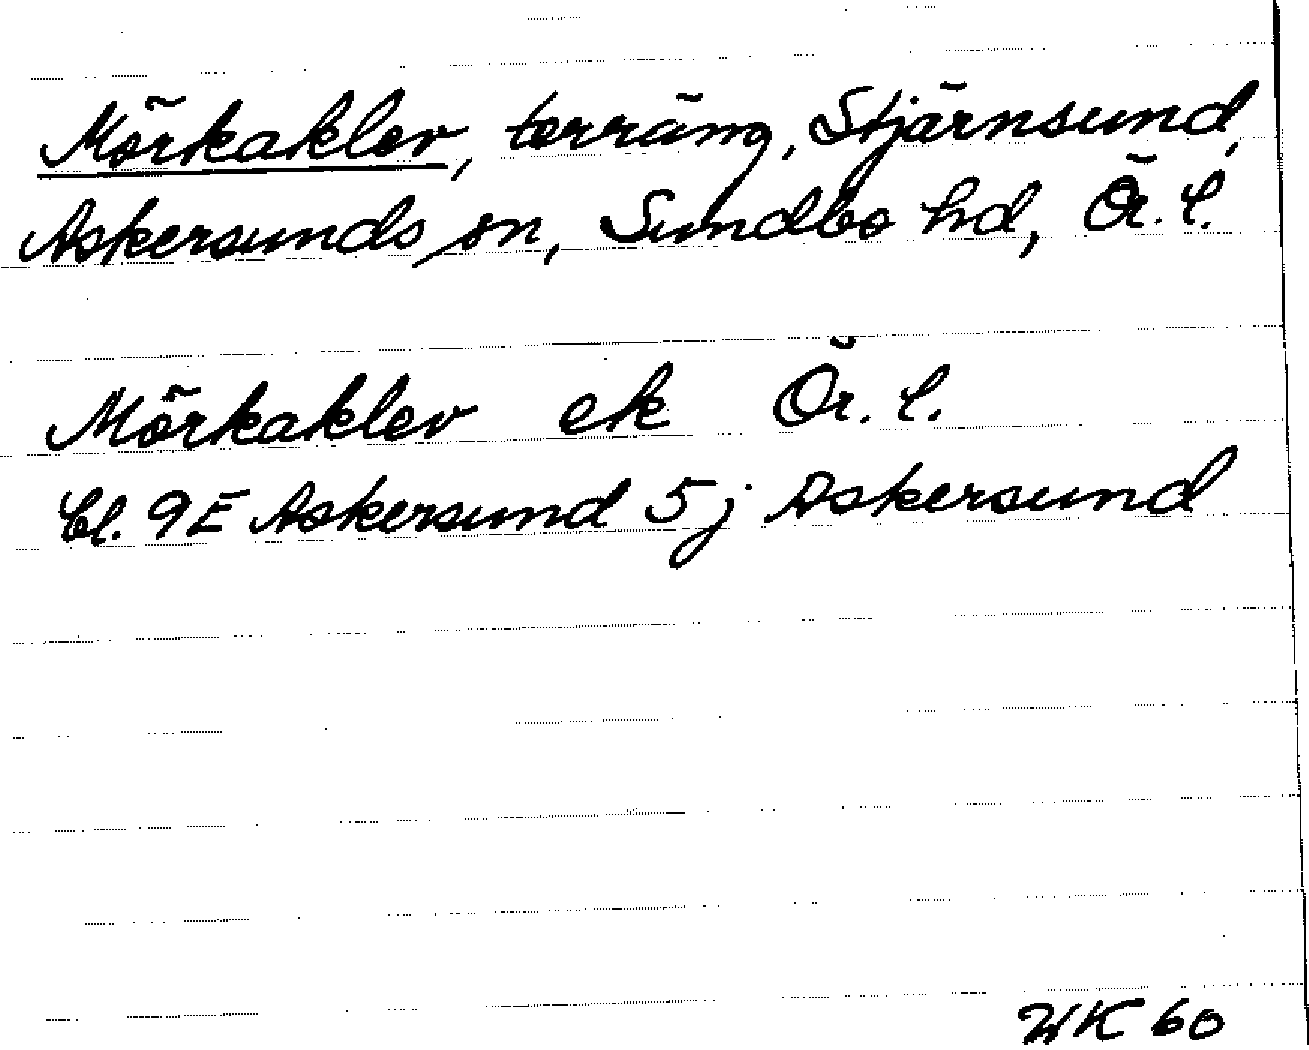 Mörkaklev, terräng, Stjärnsund,
Askersunds sn, Sundbo hd, Ör. l.
Mörkaklev ek Ör. l.
Bl. 9E Askersund 5j Askersund
WK 60